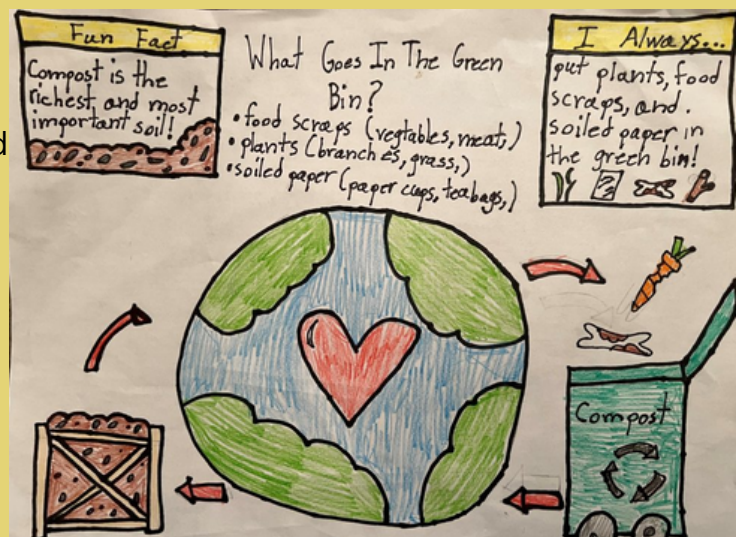 Fun Fact
Compost is the
richest, and most
important soil!
What Goes In The Green
Bin?
• food scraps (vegtables, meat,)
• plants (branches, grass,)
• soiled paper (paper cups, teabags,)
I Always...
put plants, food
scraps, and.
soiled paper in
the green bin!
Compost